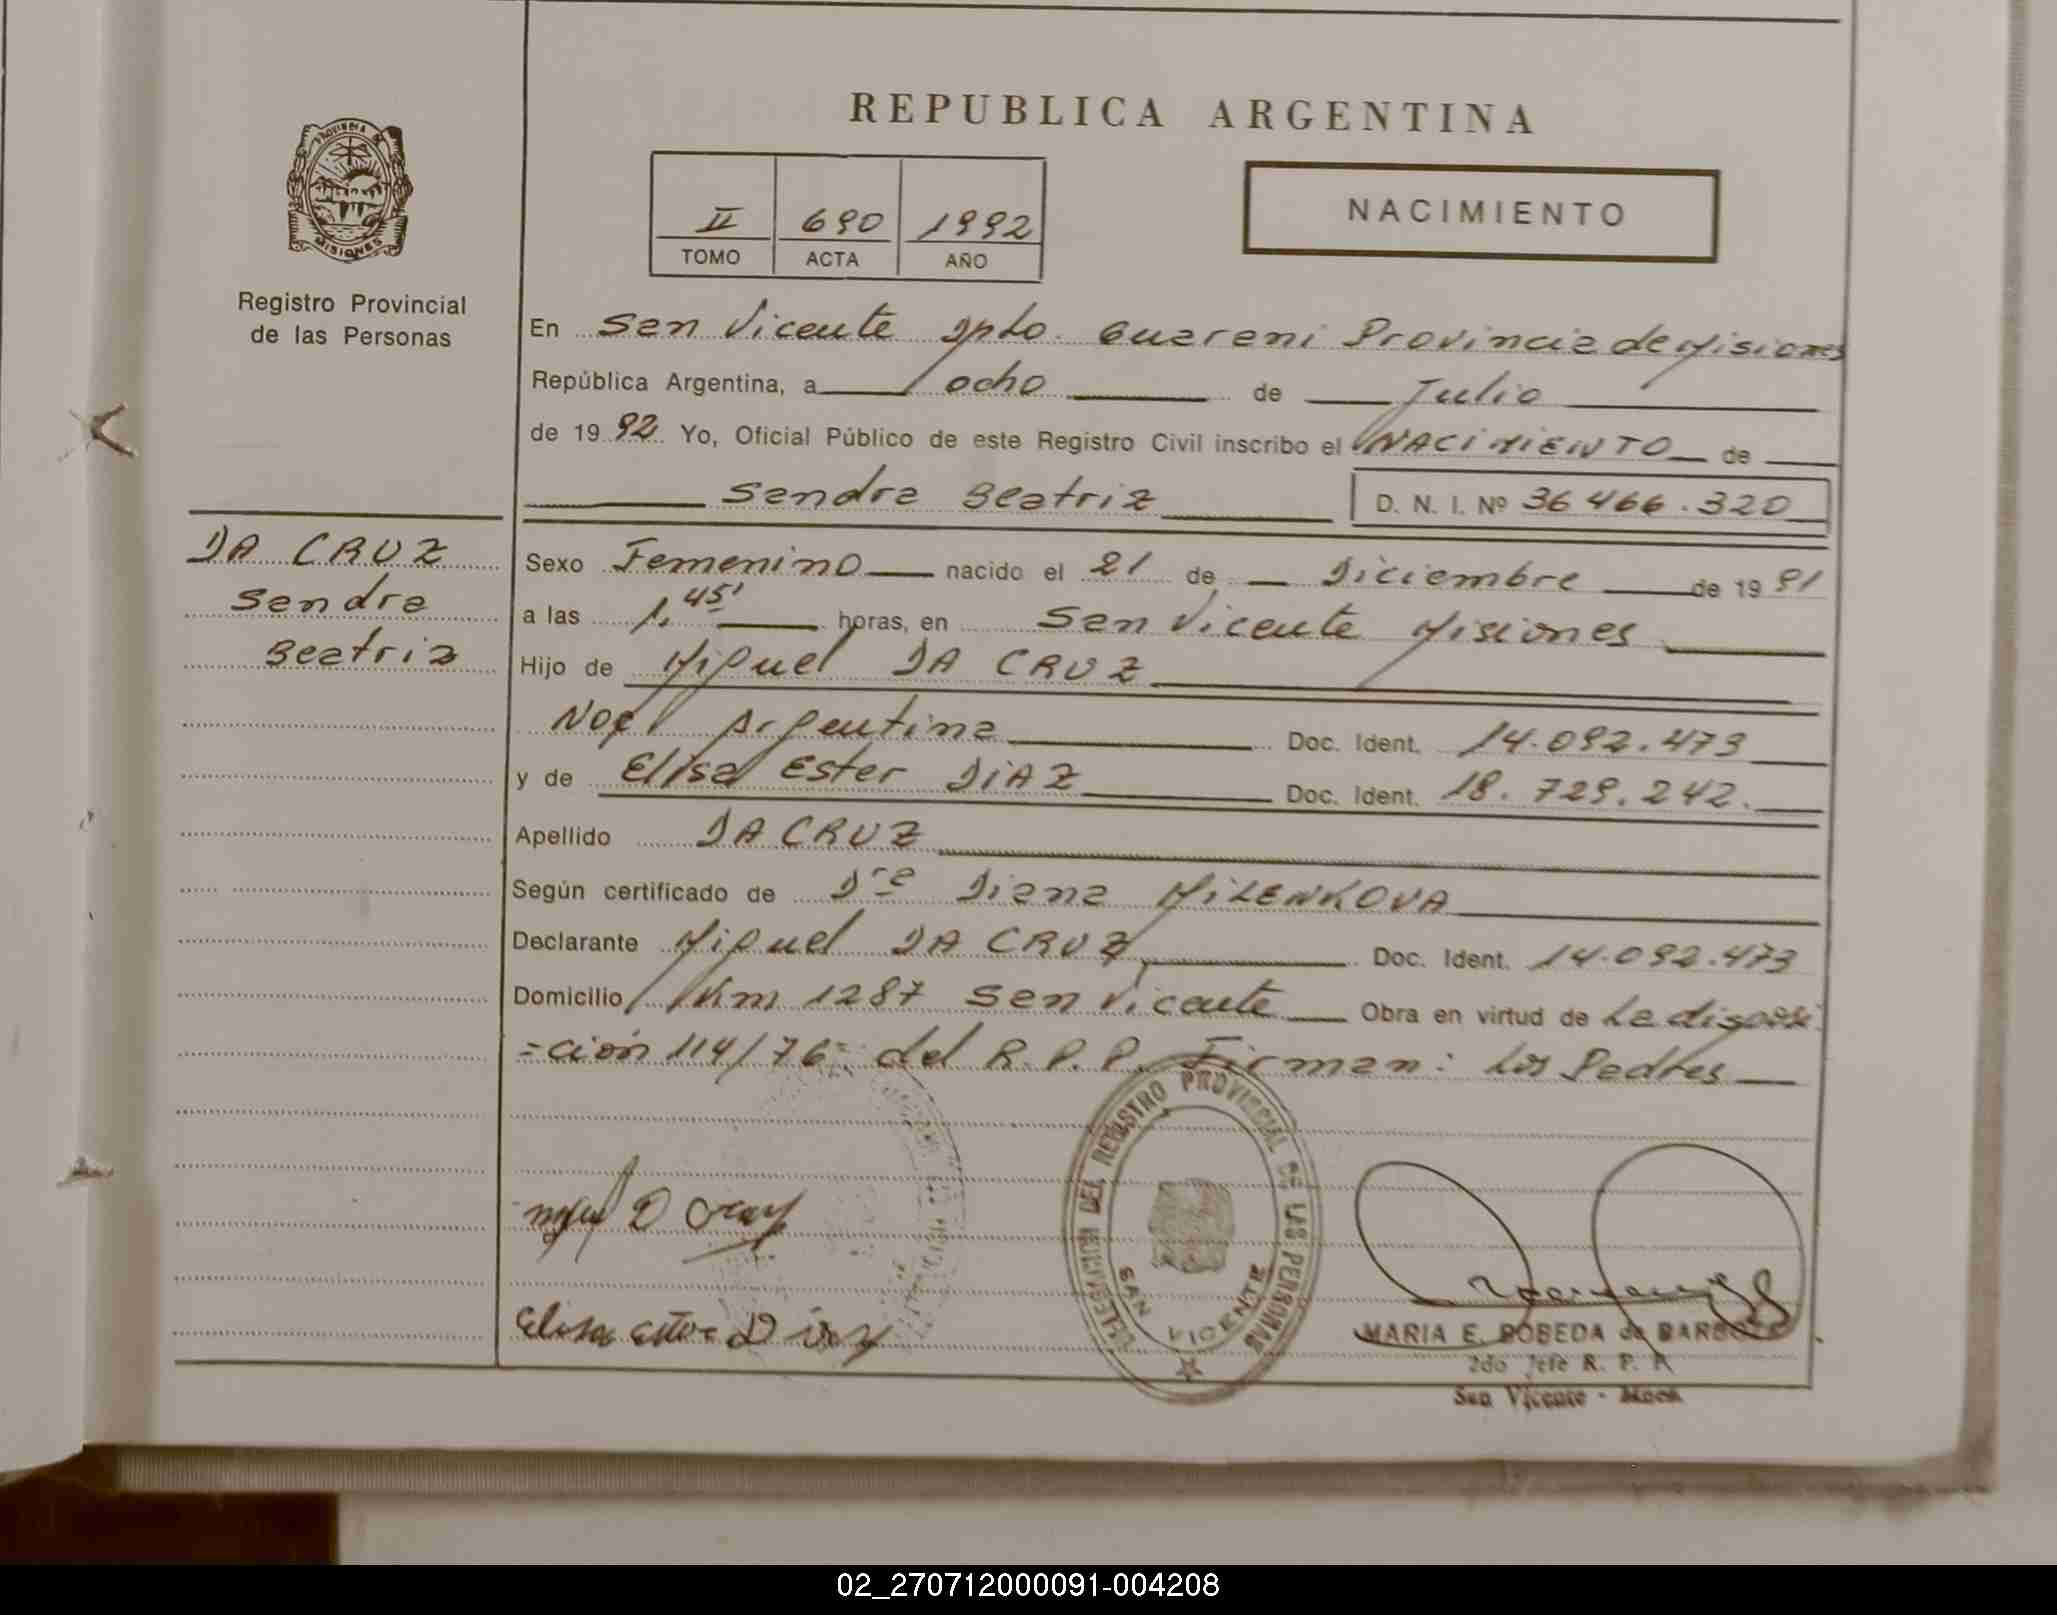 REPUBLICA ARGENTINA
PROVINCIA DE
MISIONES
Registro Provincial
de las Personas
II 690 1992
TOMO ACTA AÑO
NACIMIENTO
En San Vicente Dpto. Guarani Provincia de Misiones
República Argentina, a ocho de Julio
de 19 92 Yo, Oficial Público de este Registro Civil inscribo el NACIMIENTO de
Sandra Beatriz D. N. I. Nº 36 466.320
DA CRUZ
Sandra
Beatriz
Sexo Femenino nacido el 21 de Diciembre de 19 91
a las 1,45' horas, en San Vicente Misiones
Hijo de Miguel DA CRUZ
Nac Argentina Doc. Ident. 14.092.473
y de Elisa Ester DIAZ Doc. Ident. 18.729.242.
Apellido DA CRUZ
Según certificado de Dra Diana MILENKOVA
Declarante Miguel DA CRUZ Doc. Ident. 14.092.473
Domicilio Km 1287 San Vicente Obra en virtud de La disposi
=ción 114/76= del R.P.P. Firman: Los Padres
DELEGACION DEL REGISTRO PROVINCIAL DE LAS PERSONAS
SAN VICENTE
Elisa Ester Diaz
MARIA E. BOBEDA de
2do Jefe R. P. P.
San Vicente - Mnes.
02_270712000091-004208